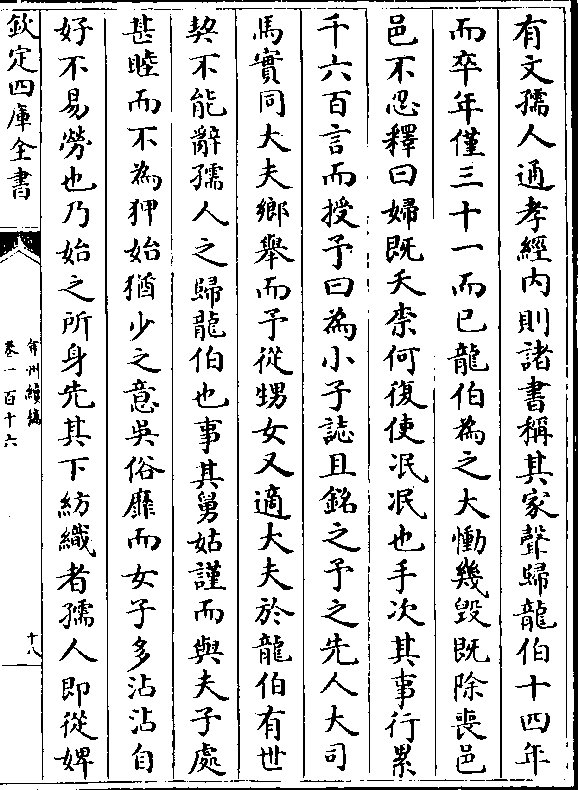 有文孺人通孝經内則諸書稱其家聲歸龍伯十四年
而卒年僅三十一而已龍伯為之大慟幾毁既除喪邑
邑不忍釋曰婦既夭柰何復使冺冺也手次其事行累
千六百言而授予曰為小子誌且銘之予之先人大司
馬實同大夫鄉舉而予從甥女又適大夫於龍伯有世
契不能辭孺人之歸龍伯也事其舅姑謹而與夫子處
甚睦而不為狎始猶少之意吳俗靡而女子多沾沾自
好不易勞也乃始之所身先其下紡織者孺人即從婢
欽定四庫全書
弇州續稿
卷一百十六
十八